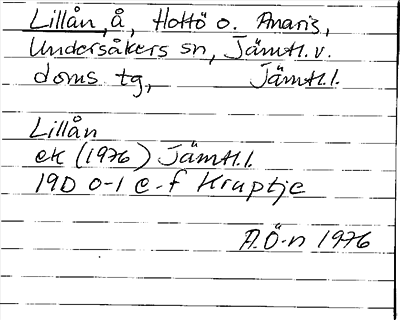 Lillån, å, Hottö o. Anaris,
Undersåkers sn, Jämtl. v.
doms tg, Jämtl. l.
Lillån
ek (1976) Jämtl. l.
19D 0-1 e-f Kruptje
A.Ö-n 1976